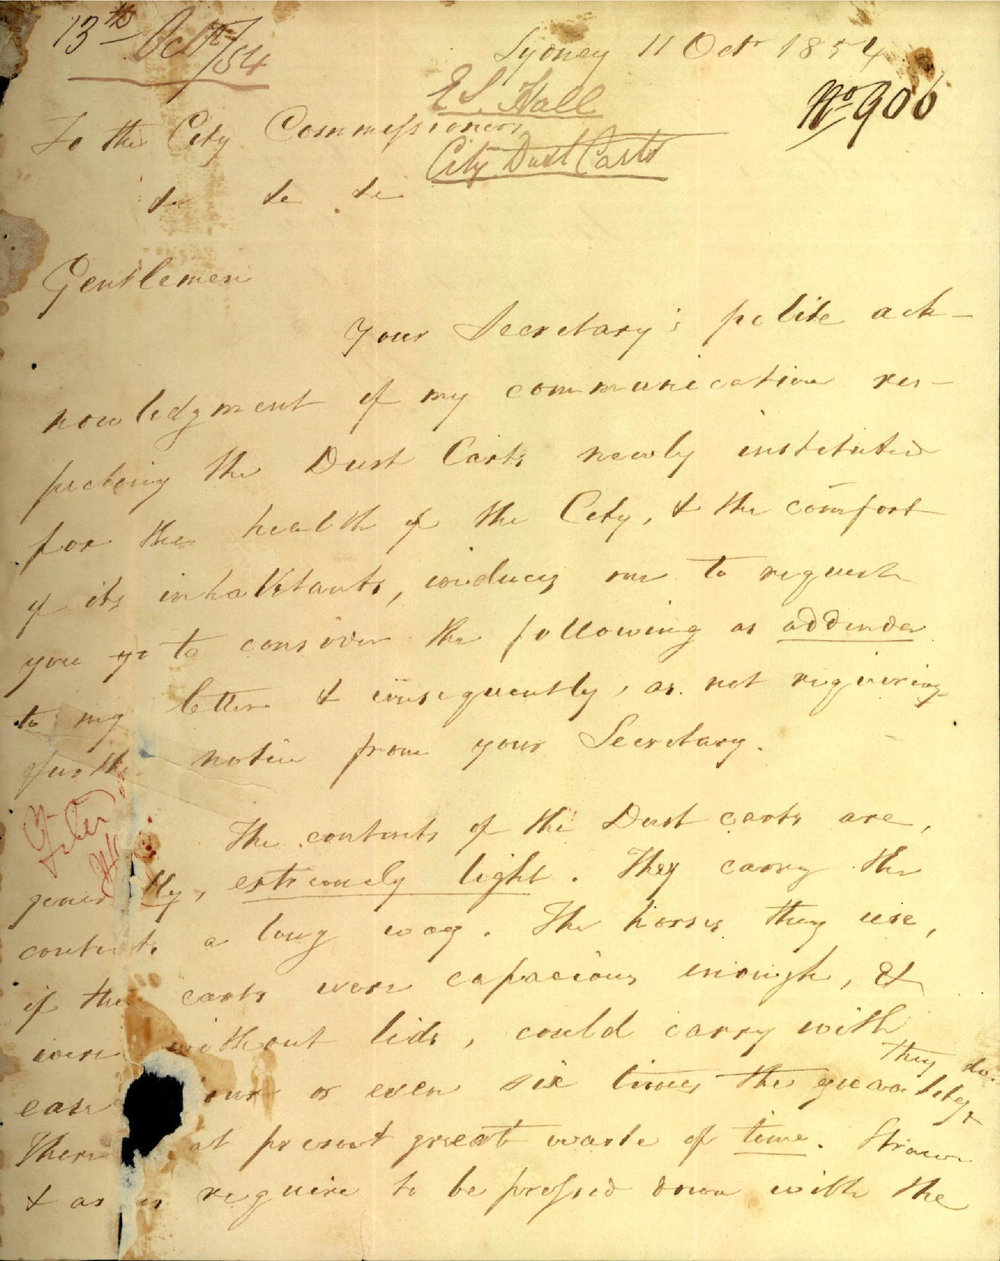 13th Oct/54
Sydney 11 Octr 1854
No 906
E S. Hall
City Dust Carts
To the City Commissioners
&c &c &c
Gentlemen
Your Secretary's polite ack-
nowledgment of my communication res-
pecting the Dust Carts newly instituted
for the health of the City, & the comfort
of its inhabitants, induces me to request
you to consider the following as addenda
to my letter & consequently, as not requiring
further notice from your Secretary.
The contents of the Dust carts are,
generally, extremely light. They carry the
contents a long way. The horses they use,
if the carts were capacious enough, &
were without lids, could carry with
ease four or even six times the quantity they do.
There at present great waste of time. Straw
& as require to be pressed down with the